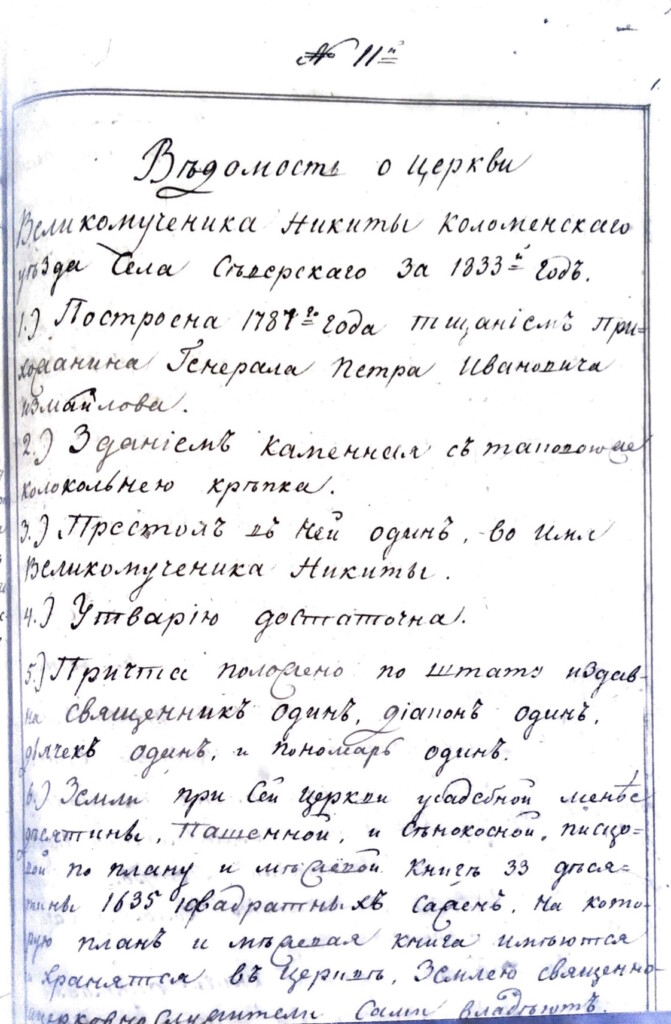 № 11й
1.
Вѣдомость о церкви
Великомученика Никиты Коломенскаго
уѣзда Села Сѣверскаго За 1833й годъ.
1.) Построена 1787го года тщаніемъ при-
хожанина Генерала Петра Ивановича
Измайлова.
2.) Зданіемъ каменная съ таковою же
колокольнею крѣпка.
3.) Престолъ въ ней одинъ, во имя
Великомученика Никиты.
4.) Утварію достаточна.
5.) Причта положено по штату издав-
на священникъ одинъ, діаконъ одинъ,
дьячекъ одинъ, и пономарь одинъ.
6.) Земли при сей церкви усадебной менѣе
десятины, пашенной, и сѣнокосной, писцо-
вой по плану и межевой книгѣ 33 деся-
тины 1635 квадратныхъ сажень, на кото-
рую планъ и межевая книга имѣются
и хранятся въ церкви, Землею священно-
церковно служители сами владѣютъ.